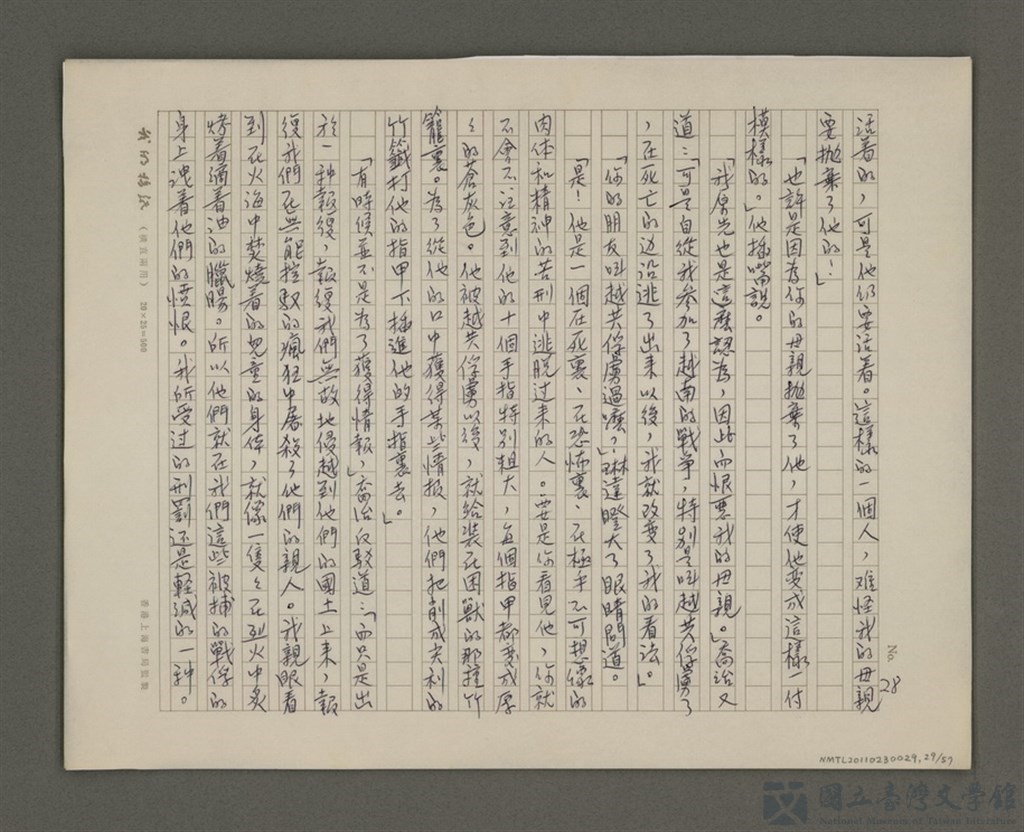 No. 28
活着的，可是他仍要活着。這樣的一個人，难怪我的母親
要拋棄了他的！」
「也許是因為你的母親拋棄了他，才使他变成這樣一付
模樣的。」他插嘴說。
「我原先也是這麽認為，因此而恨惡我的母親。」喬治又
道：「可是自從我参加了越南的戰争，特别是叫越共俘虜了
，在死亡的边沿逃了出来以後，我就改变了我的看法。」
「你的朋友叫越共俘虜過嚒，」琳達瞪大了眼睛問道。
「是！他是一個在死裏、在恐怖裏、在極乎不可想像的
肉体和精神的苦刑中逃脱过来的人。要是你看見他，你就
不會不注意到他的十個手指特别粗大，每個指甲都变成厚
々的蒼灰色。他被越共俘虜以後，就给装在困獸的那種竹
籠裏。為了從他的口中獲得某些情报，他們把削成尖利的
竹籤打他的指甲下插進他的手指裏去。」
「有時候並不是為了獲得情報，」喬治反駁道：「而只是出
於一种報復，報復我們無故地侵越到他們的國土上来，報
復我們在無能控馭的瘋狂中屠殺了他們的親人。我親眼看
到在火海中焚燒着的兒童的身体，就像一隻々在烈火中炙
烤着滴着油的臘腸。所以他們就在我們這些被捕的戰俘的
身上洩着他們的憤恨。我所受过的刑罰还是輕減的一种。
20×25=500
香港上海書局監製
NMTL20110230029,29/57
國立臺灣文學館
National Museum of Taiwan Literature